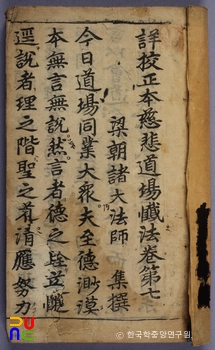 詳校正本慈悲道場懺法卷第七
梁朝諸大法師 集撰
今日道場同業大衆夫至德渺漠
本無言無說然言者德之詮道之
逕說者理之階聖之 清應努力
한국학중앙연구원